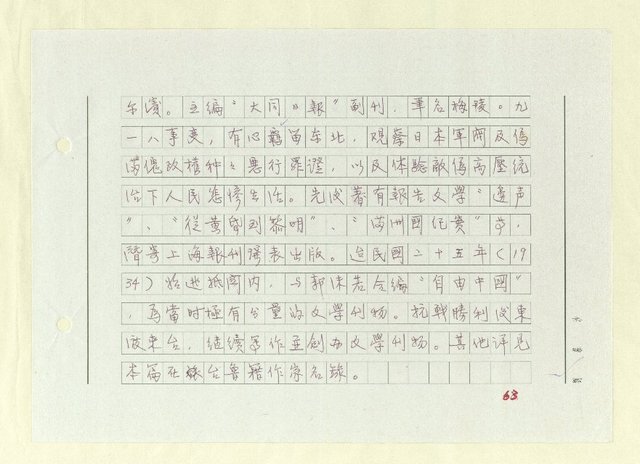 尔濱。主編“大同報”副刊，筆名梅陵。九
一八事变，有心羈留东北，观察日本軍閥及偽
满傀政權种々悪行罪證，以及体驗敵偽高壓統
治下人民悲惨生活。先後著有報告文學“邊声
”、“從黄昏到黎明”、“满洲國紀實”等，
潛寄上海報刊發表出版。迨民國二十五年（19
34）始逃抵関内，与郭沫若合編“自由中國”
，爲當時極有分量的文學刊物。抗戰勝利後東
渡來台，継續寫作並創办文學刊物。其他詳見
本篇在台魯籍作家名錄。
63